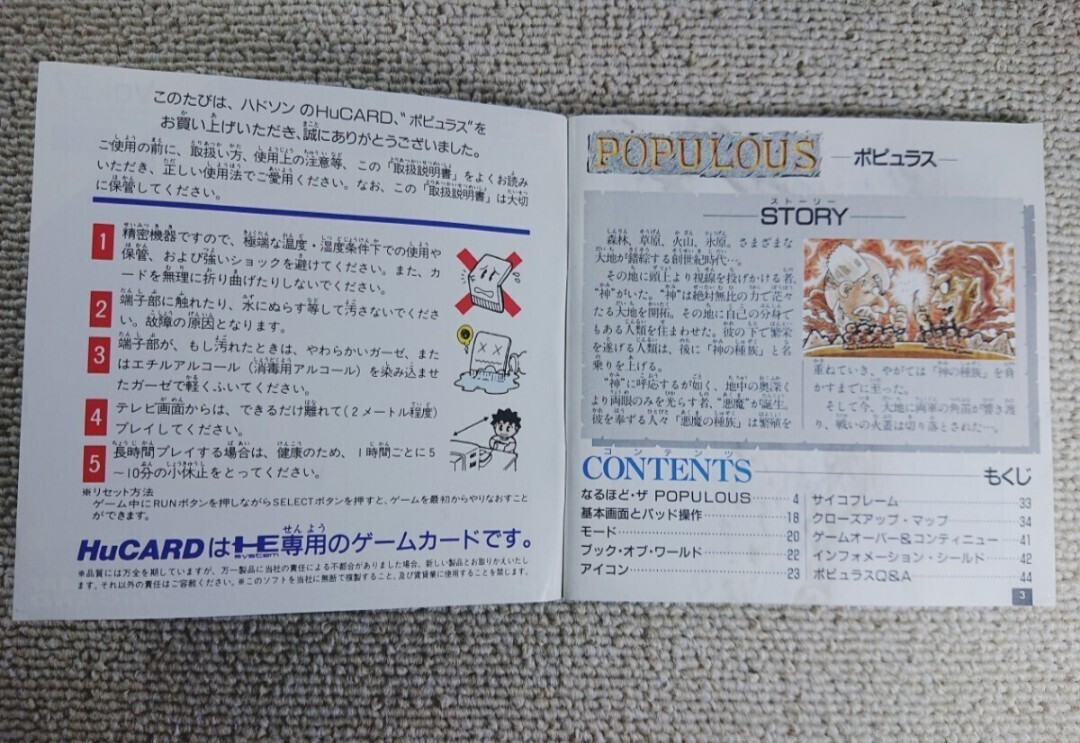 このたびは、ハドソンのHuCARD、“ポピュラス”を
お買い上げいただき、誠にありがとうございました。
ご使用の前に、取扱い方、使用上の注意等、この「取扱説明書」をよくお読み
いただき、正しい使用法でご愛用ください。なお、この「取扱説明書」は大切
に保管してください。
1 精密機器ですので、極端な温度・湿度条件下での使用や
保管、および強いショックを避けてください。また、カ
ードを無理に折り曲げたりしないでください。
2 端子部に触れたり、水にぬらす等して汚さないでくださ
い。故障の原因となります。
3 端子部が、もし汚れたときは、やわらかいガーゼ、また
はエチルアルコール(消毒用アルコール)を染み込ませ
たガーゼで軽くふいてください。
4 テレビ画面からは、できるだけ離れて(2メートル程度)
プレイしてください。
5 長時間プレイする場合は、健康のため、1時間ごとに5
〜10分の小休止をとってください。
※リセット方法
ゲーム中にRUNボタンを押しながらSELECTボタンを押すと、ゲームを最初からやりなおすこと
ができます。
HuCARDはHE SYSTEM専用のゲームカードです。
※品質には万全を期していますが、万一製品に当社の責任による不都合がありました場合、新しい製品とお取りかえいたし
ます。それ以外の責任はご容赦ください。※このソフトを当社に無断で複製すること、及び賃貸業に使用することを禁じます。
POPULOUS —ポピュラス—
ストーリー
STORY
森林、草原、火山、氷原。さまざまな
大地が錯綜する創世紀時代…。
その地に頭上より視線を投げかける者、
“神”がいた。“神”は絶対無比の力で茫々
たる大地を開拓。その地に自己の分身で
もある人類を住まわせた。彼の下で繁栄
を遂げる人類は、後に「神の種族」と名
乗りを上げる。
“神”に呼応するが如く、地中の奥深く
より両眼のみを光らす者、“悪魔”が誕生。
彼を奉ずる人々「悪魔の種族」は繁殖を
重ねていき、やがては「神の種族」を脅
かすまでに至った。
そして今、大地に両軍の角笛が響き渡
り、戦いの火蓋は切り落とされた…。
コンテンツ
CONTENTS もくじ
なるほど・ザ POPULOUS 4
基本画面とパッド操作 18
モード 20
ブック・オブ・ワールド 22
アイコン 23
サイコフレーム 33
クローズアップ・マップ 34
ゲームオーバー&コンティニュー 41
インフォメーション・シールド 42
ポピュラスQ&A 44
3